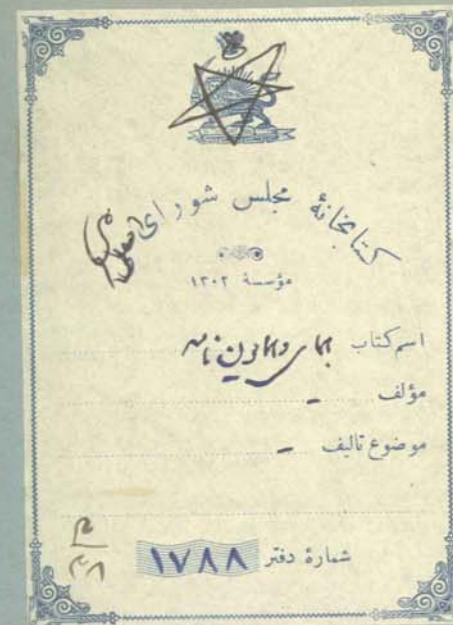 کتابخانهٔ مجلس شورای
مؤسسهٔ ۱۳۰۲
اسم کتاب همای و همایون نامه
مؤلف -
موضوع تالیف -
شمارهٔ دفتر ۱۷۸۸